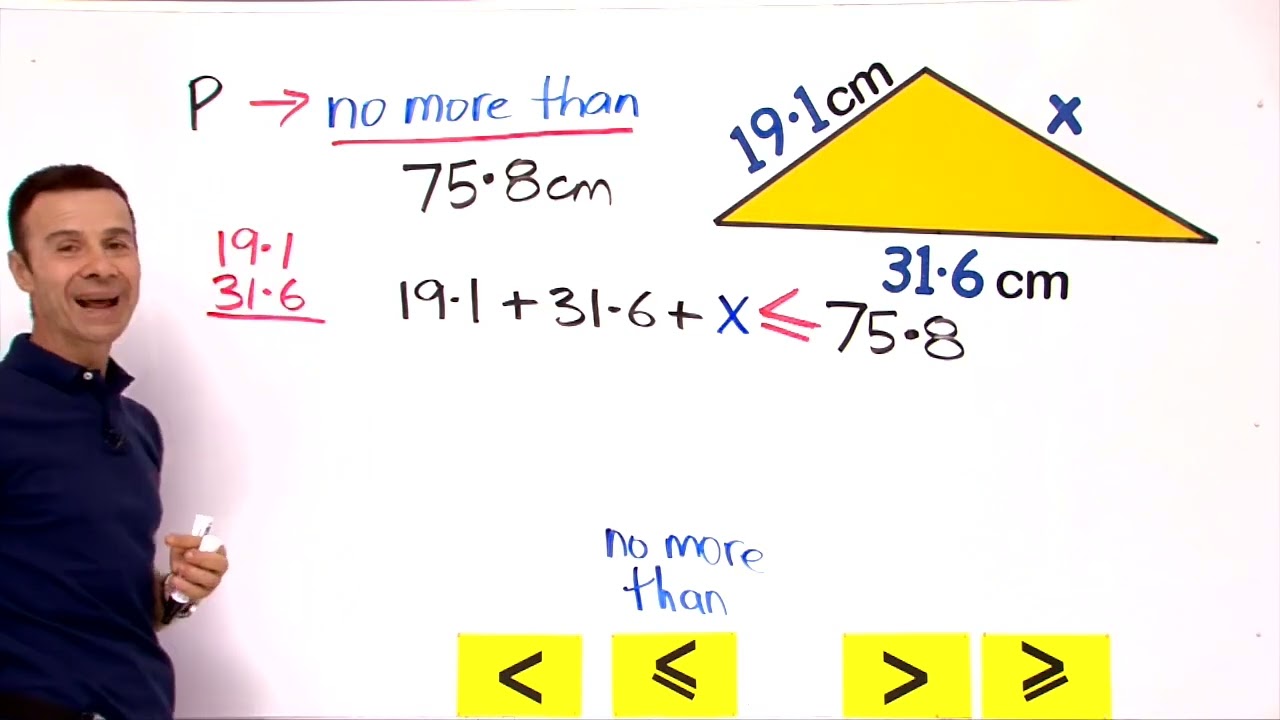 P → no more than
75·8cm
19·1cm
x
31·6 cm
19·1
31·6
19·1 + 31·6 + x ≤ 75·8
no more
than
<
≤
>
≥